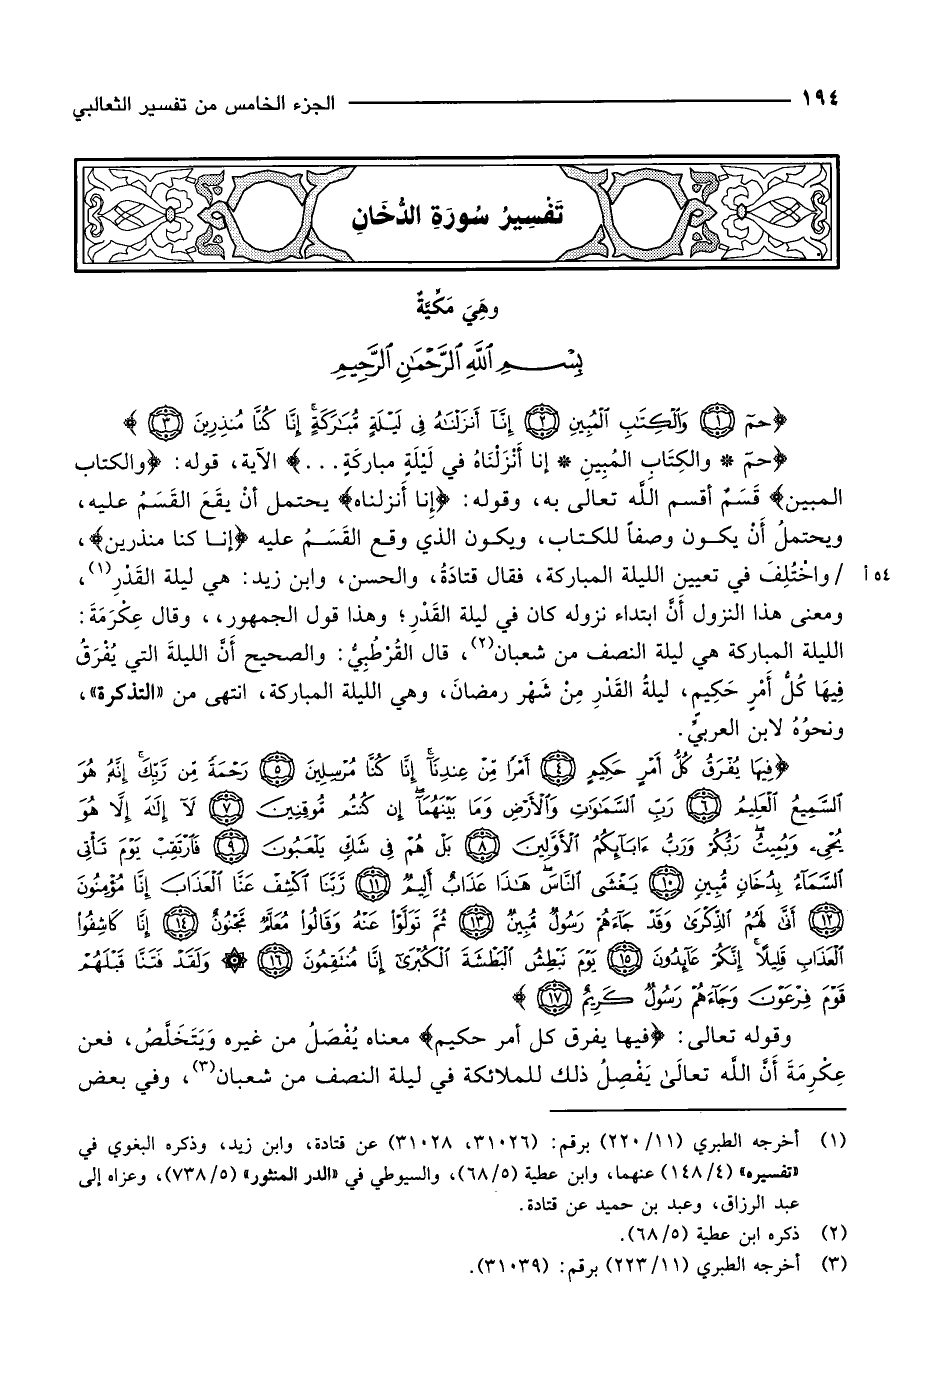 ١٩٤ الجزء الخامس من تفسير الثعالبي
تَفْسِيرُ سُورَةِ الدُّخَانِ
وهِيَ مَكِّيَّةٌ
بِسْــــمِ ٱللَّهِ ٱلرَّحْمَٰنِ ٱلرَّحِيمِ
﴿حمٓ ﴿١﴾ وَٱلْكِتَٰبِ ٱلْمُبِينِ ﴿٢﴾ إِنَّآ أَنزَلْنَٰهُ فِى لَيْلَةٍ مُّبَٰرَكَةٍ ۚ إِنَّا كُنَّا مُنذِرِينَ ﴿٣﴾ ﴾
﴿حمٓ * والكِتَابِ المُبِينِ * إنا أَنْزَلْنَاهُ في لَيْلَةٍ مباركَةٍ...﴾ الآية، قوله: ﴿والكتاب
المبين﴾ قَسَمٌ أقسم اللَّه تعالى به، وقوله: ﴿إنا أنزلناه﴾ يحتمل أنْ يقَعَ القَسَمُ عليه،
ويحتملُ أَنْ يكــون وصفاً للكتـاب، ويكـون الذي وقـع القَسَــمُ عليه ﴿إنـا كنا منذرين﴾،
٥٤ أ / واخْتُلِفَ في تعيين الليلة المباركة، فقال قتادَةُ، والحسن، وابن زيد: هي ليلة القَدْرِ(١)،
ومعنى هذا النزول أَنَّ ابتداء نزوله كان في ليلة القَدْرِ؛ وهذا قول الجمهور،، وقال عِكْرِمَةَ:
الليلة المباركة هي ليلة النصف من شعبان(٢)، قال القُرْطُبِيُّ: والصحيح أَنَّ الليلةَ التي يُفْرَقُ
فِيهَا كُلُّ أَمْرٍ حَكِيمٍ، ليلةُ القَدْرِ مِنْ شَهْرِ رمضانَ، وهي الليلة المباركة، انتهى من «التذكرة»،
ونحوُهُ لابن العربيِّ.
﴿فِيهَا يُفْرَقُ كُلُّ أَمْرٍ حَكِيمٍ ﴿٤﴾ أَمْرًا مِّنْ عِندِنَآ ۚ إِنَّا كُنَّا مُرْسِلِينَ ﴿٥﴾ رَحْمَةً مِّن رَّبِّكَ ۚ إِنَّهُۥ هُوَ
ٱلسَّمِيعُ ٱلْعَلِيمُ ﴿٦﴾ رَبِّ ٱلسَّمَٰوَٰتِ وَٱلْأَرْضِ وَمَا بَيْنَهُمَآ ۖ إِن كُنتُم مُّوقِنِينَ ﴿٧﴾ لَآ إِلَٰهَ إِلَّا هُوَ
يُحْىِۦ وَيُمِيتُ ۖ رَبُّكُمْ وَرَبُّ ءَابَآئِكُمُ ٱلْأَوَّلِينَ ﴿٨﴾ بَلْ هُمْ فِى شَكٍّ يَلْعَبُونَ ﴿٩﴾ فَٱرْتَقِبْ يَوْمَ تَأْتِى
ٱلسَّمَآءُ بِدُخَانٍ مُّبِينٍ ﴿١٠﴾ يَغْشَى ٱلنَّاسَ ۖ هَٰذَا عَذَابٌ أَلِيمٌ ﴿١١﴾ رَّبَّنَا ٱكْشِفْ عَنَّا ٱلْعَذَابَ إِنَّا مُؤْمِنُونَ
﴿١٢﴾ أَنَّىٰ لَهُمُ ٱلذِّكْرَىٰ وَقَدْ جَآءَهُمْ رَسُولٌ مُّبِينٌ ﴿١٣﴾ ثُمَّ تَوَلَّوْا۟ عَنْهُ وَقَالُوا۟ مُعَلَّمٌ مَّجْنُونٌ ﴿١٤﴾ إِنَّا كَاشِفُوا۟
ٱلْعَذَابِ قَلِيلًا ۚ إِنَّكُمْ عَآئِدُونَ ﴿١٥﴾ يَوْمَ نَبْطِشُ ٱلْبَطْشَةَ ٱلْكُبْرَىٰٓ إِنَّا مُنتَقِمُونَ ﴿١٦﴾ ۞ وَلَقَدْ فَتَنَّا قَبْلَهُمْ
قَوْمَ فِرْعَوْنَ وَجَآءَهُمْ رَسُولٌ كَرِيمٌ ﴿١٧﴾ ﴾
وقوله تعالى: ﴿فيها يفرق كل أمر حكيم﴾ معناه يُفْصَلُ من غيره وَيَتَخَلَّصُ، فعن
عِكْرِمَةَ أَنَّ الله تعالَىٰ يَفْصِلُ ذلك للملائكة في ليلة النصف من شعبان(٣)، وفي بعض
(١) أخرجه الطبري (١١/ ٢٢٠) برقم: (٣١٠٢٦، ٣١٠٢٨) عن قتادة، وابن زيد، وذكره البغوي في
«تفسيره» (٤/ ١٤٨) عنهما، وابن عطية (٥/ ٦٨)، والسيوطي في «الدر المنثور» (٥/ ٧٣٨)، وعزاه إلى
عبد الرزاق، وعبد بن حميد عن قتادة.
(٢) ذكره ابن عطية (٥/ ٦٨).
(٣) أخرجه الطبري (١١/ ٢٢٣) برقم: (٣١٠٣٩).